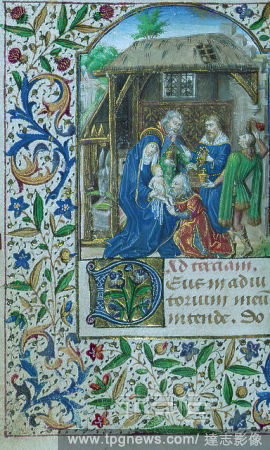 Ad terciam.
Deus in adiu
torium meu
intende. Do
www.tpgnews.com/達志影像